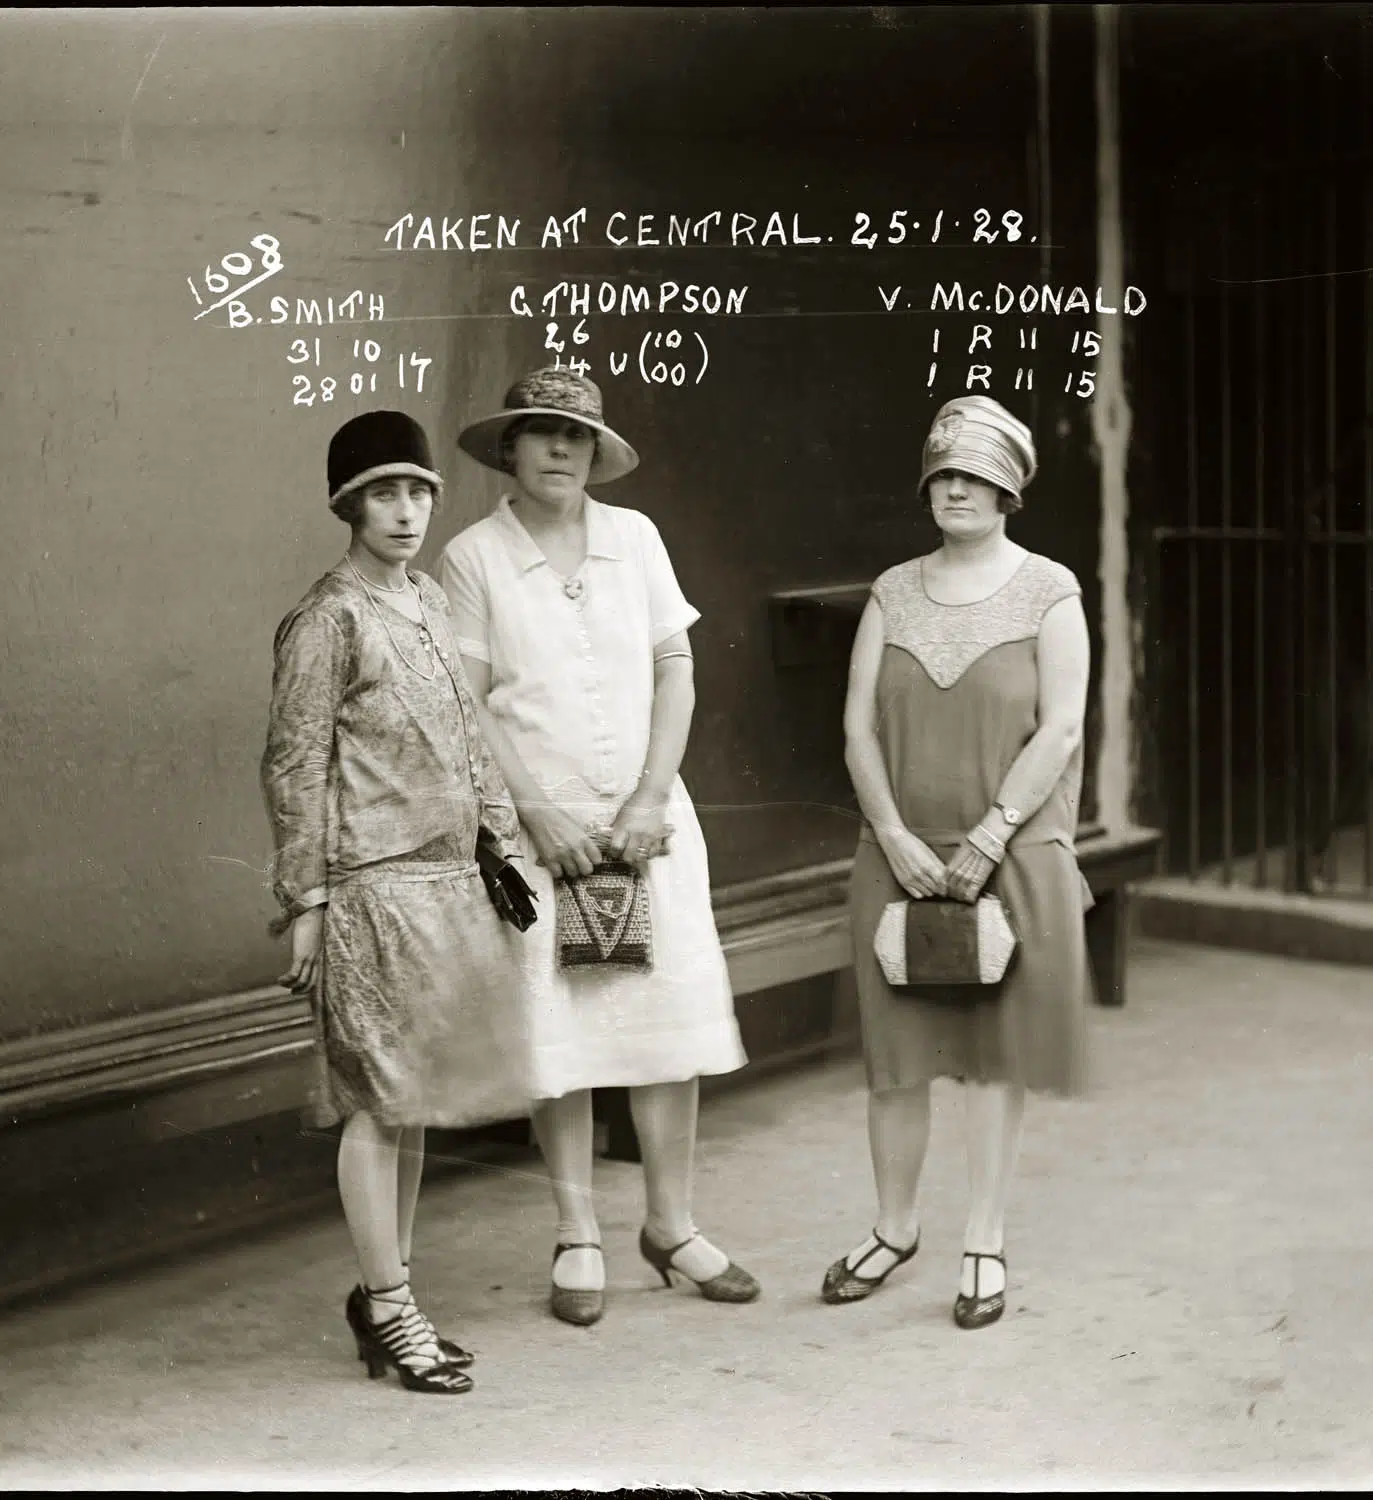 TAKEN AT CENTRAL. 25·1·28.
1608
B. SMITH
31 10
28 01 17
G. THOMPSON
26
14 U (10
00)
V. McDONALD
1 R 11 15
1 R 11 15